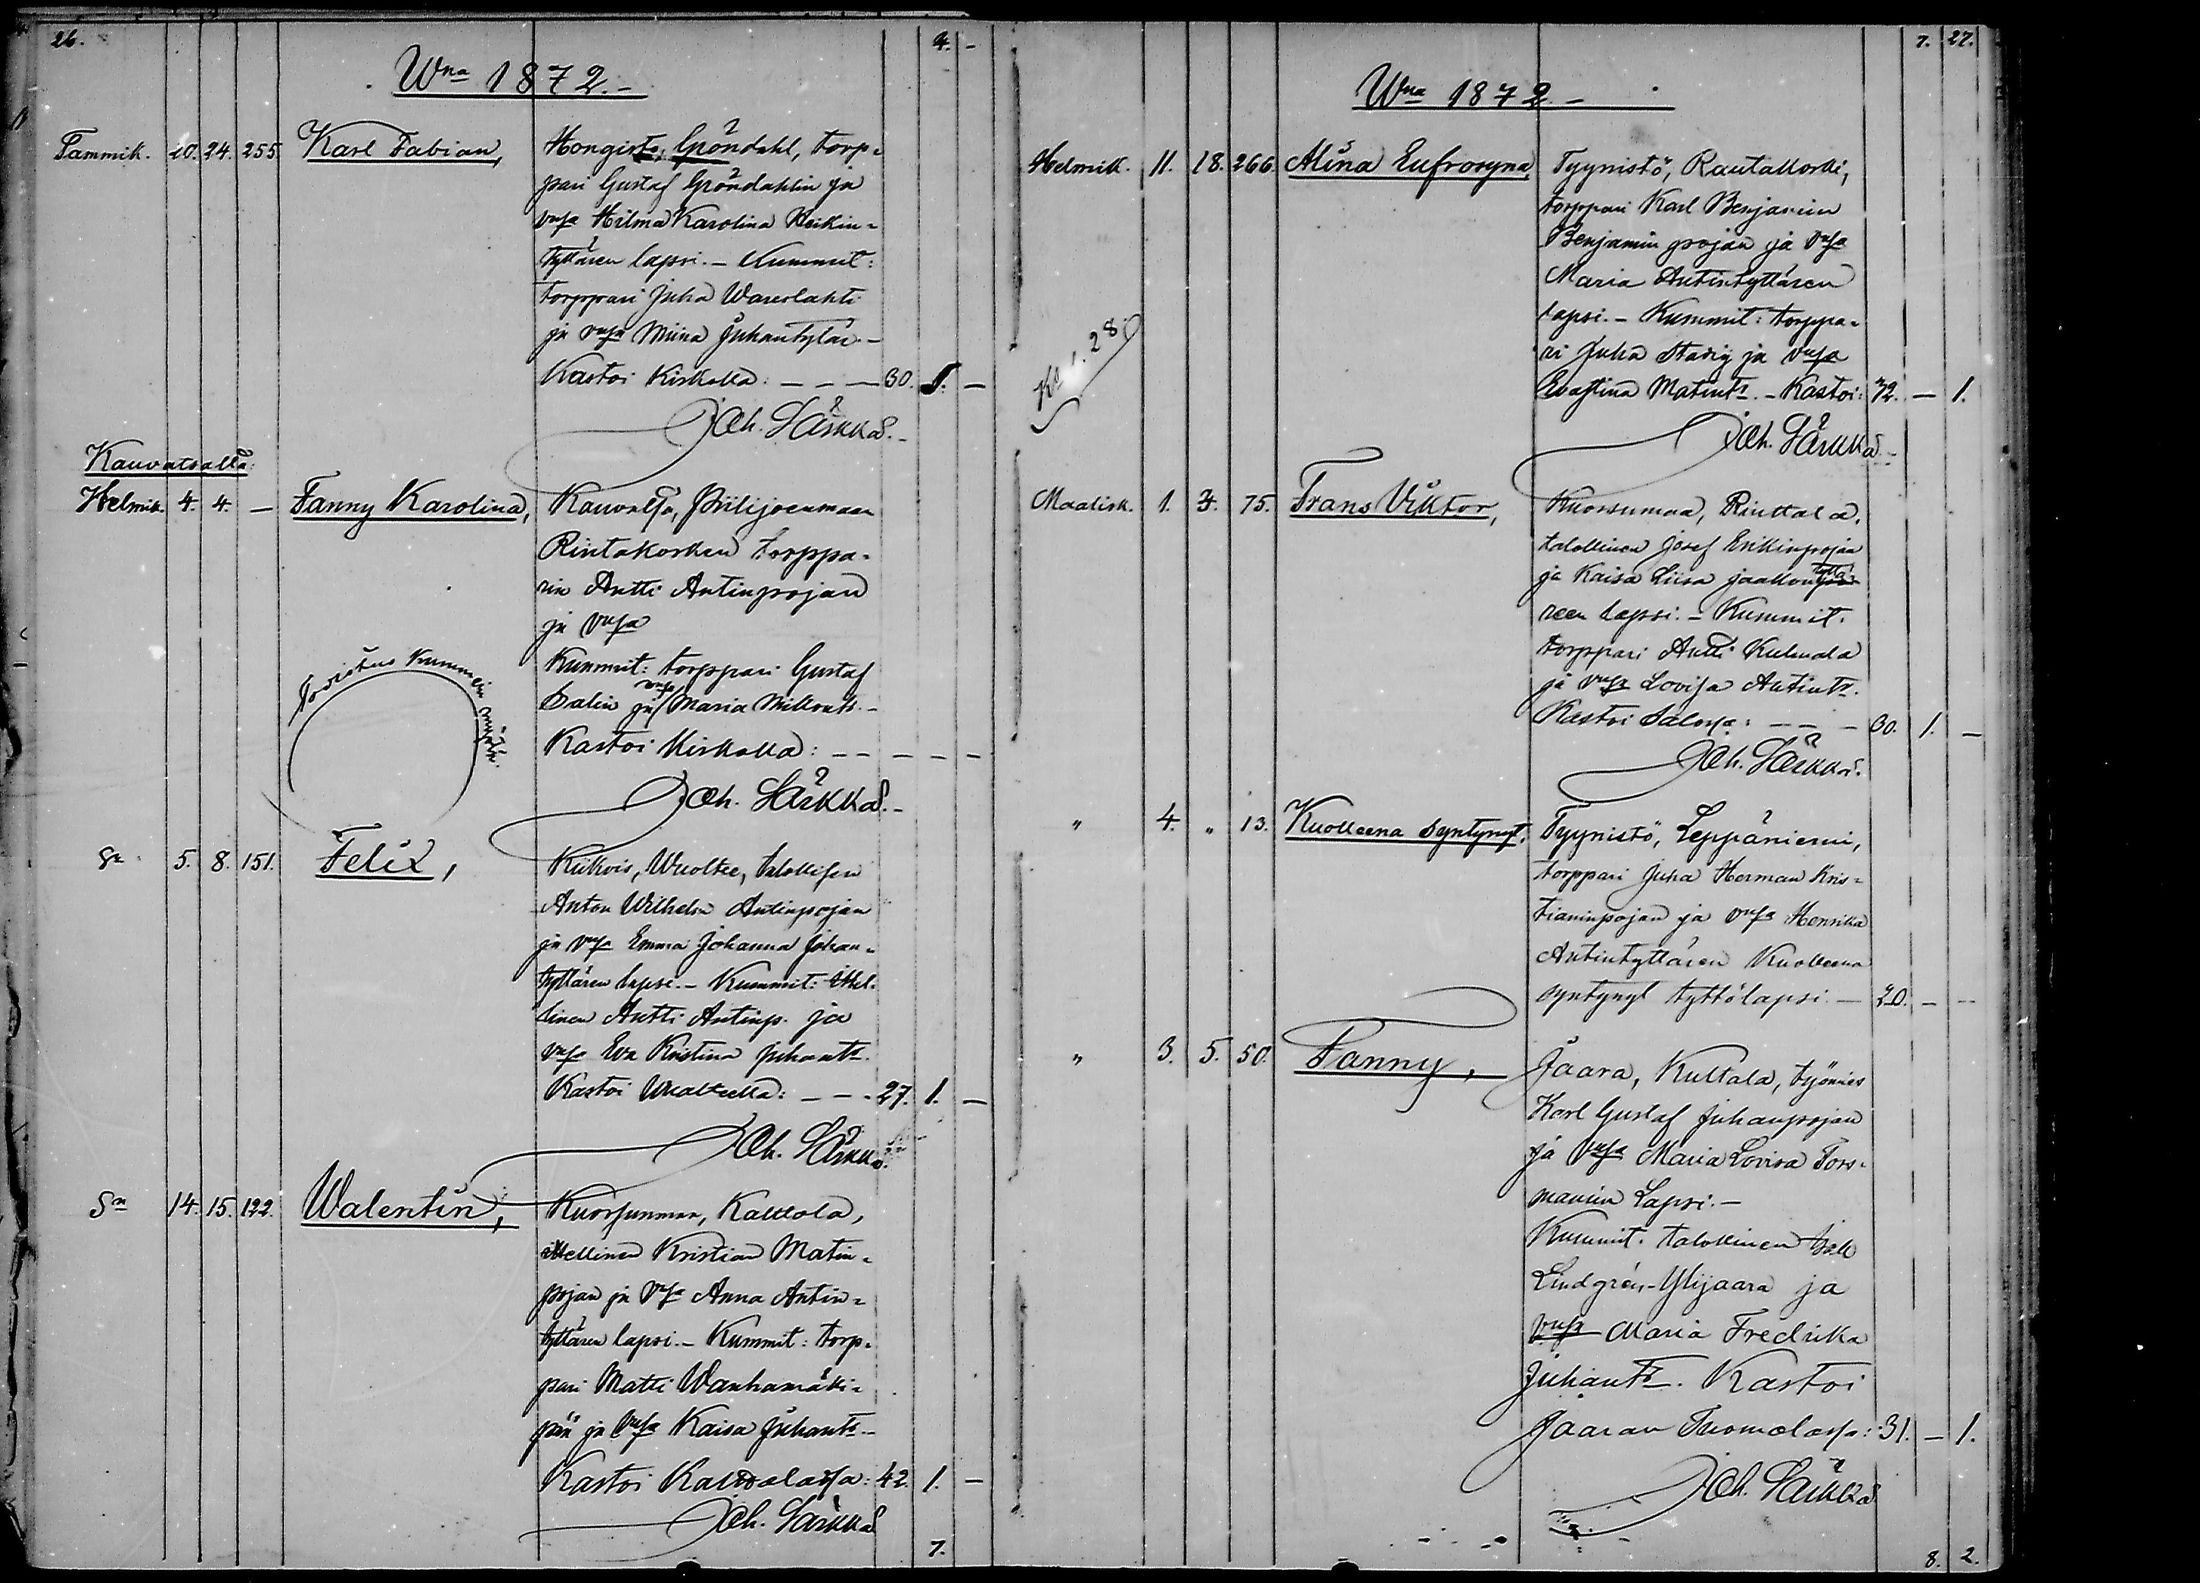 26.
4. -
Wna 1872.-
Tammik. 20. 24. 255. Karl Fabian,
Hongisto, Gröndahl, torp-
pari Gustaf Gröndahlin ja
Hilma Karolina Heikin-
tyttären lapsi. - Kummit:
torppari Juha Wareslahti
ja Miina Juhantytär. -
Kastoi Kirkolla: - - - 30. 1. -
Joh. Särkkä.-
Kauvatsalla:
Helmik. 4. 4. - Fanny Karolina,
Kauvatsa, Piilijoenmaan
Rintakosken torppa-
rin Antti Antinpojan
ja
Kummit: torppari Gustaf
Dalin ja Maria
Kastoi Kirkolla: - - - -
Joh. Särkkä.-
Sn 5. 8. 151. Felix,
Kiikois, Wuoltee,
Anton Wilhelm Antinpojan
ja Emma Johanna Johan-
tyttären lapsi. - Kummit:
Antti Antinp. ja
Eva Kristina Juhants.
Kastoi - - - 27. 1. -
Joh. Särkkä.
Sn 14. 15. 122. Walentin,
Kattola,
Kristian Matin-
pojan ja Anna Antin-
tyttären lapsi. - Kummit: torp-
pari Matti Wanhamäki-
pää ja Kaisa Juhants. -
Kastoi 42. 1. -
Joh. Särkkä
7.
7. 27.
Wna 1872 -
Helmik. 11. 18. 266. Alina Eufrosyna,
Tyynistö, Rautakoski,
torppari Karl Benjamin
Benjamin pojan ja
Maria Antintyttären
lapsi. - Kummit: torppa-
ri Juha Stadig ja
Evastina Matints. - Kastoi: 72. - 1.
Joh. Särkkä.-
Maalisk. 1. 3. 75. Frans Viktor,
Kuorsumaa, Rinttala,
talollinen Josef Erikinpojan
ja Kaisa Liisa Jaakon tyttä-
reen lapsi. - Kummit:
torppari Antti Kulmala
ja Lovisa Antints.
Kastoi Salossa: - - - 30. 1. -
Joh. Särkkä.
" 4. " 13. Kuolleena syntynyt.
Tyynistö, Leppäniemi,
torppari Juha Herman Kris-
tianinpojan ja Henrika
Antintyttären Kuolleena
syntynyt tyttölapsi. - 20. - -
" 3. 5. 50. Fanny,
Jaara, Kultala, työmies
Karl Gustaf Juhanpojan
ja Maria Lovisa Fors-
manin Lapsi. -
Kummit: talollinen
Lindgrén-Ylijaara ja
Maria Fredrika
Juhants. Kastoi
Jaaran Tuomolassa: 31. - 1.
Joh. Särkkä
8. 2.